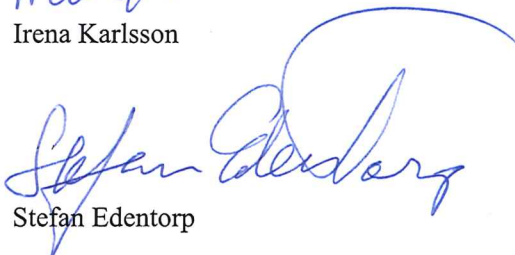 Irena Karlsson
Stefan Edentorp
Stefan Edentorp